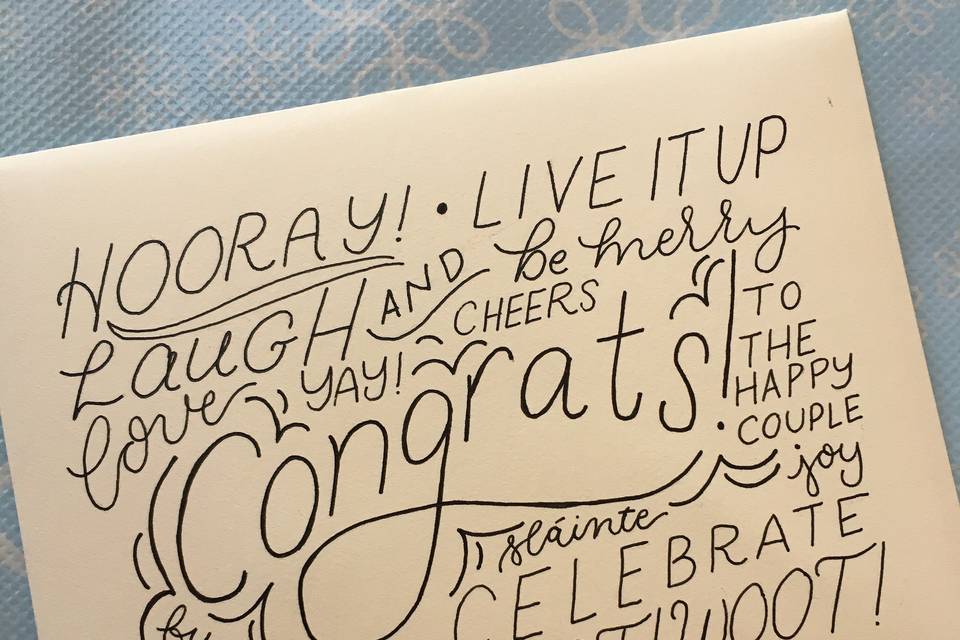 HOORAY! • LIVE IT UP
LAUGH AND be merry
love YAY! CHEERS
Congrats!
TO
THE
HAPPY
COUPLE
joy
sláinte
CELEBRATE
WOOT!